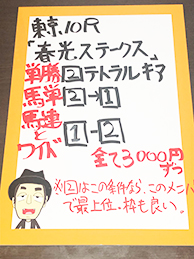 東京10R
「春光ステークス」
単勝 2 テトラルギア
馬単 2→1
馬連とワイド 1-2
全て3000円ずつ
※2はこの条件なら、このメンバーで最上位・枠も良い。